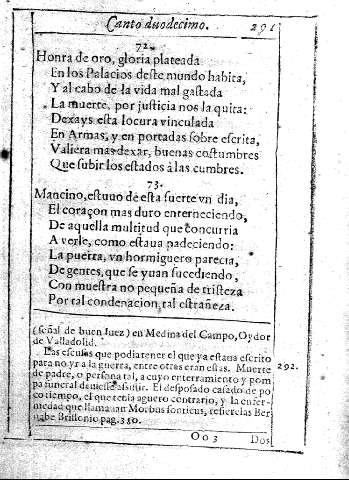 Canto duodecimo. 291
72.
Honra de oro, gloria plateada
En los Palacios deste mundo habita,
Y al cabo de la vida mal gastada
La muerte, por justicia nos la quita:
Dexays esta locura vinculada
En Armas, y en portadas sobre escrita,
Valiera mas dexar, buenas costumbres
Que subir los estados à las cumbres.
73.
Mancino, estuuo de esta suerte vn dia,
El coraçon mas duro enterneciendo,
De aquella multitud que concurria
A verle, como estaua padeciendo:
La puerta, vn hormiguero parecia,
De gentes, que se yuan sucediendo,
Con muestra no pequeña de tristeza
Por tal condenacion, tal estrañeza.
(señal de buen Iuez) en Medina del Campo, Oydor
de Valladolid.
Las escusas que podia tener el que ya estaua escrito
para no yr a la guerra, entre otras eran estas. Muerte 292.
de padre, o persona tal, a cuyo enterramiento y pom
pa funeral deuiesse assistir. El desposado casado de po
co tiempo, el que tenia aguero contrario, y la enfer-
medad que llamauan Morbus sonticus, refierelas Ber
nabe Brissonio pag. 380.
Oo3 Dos